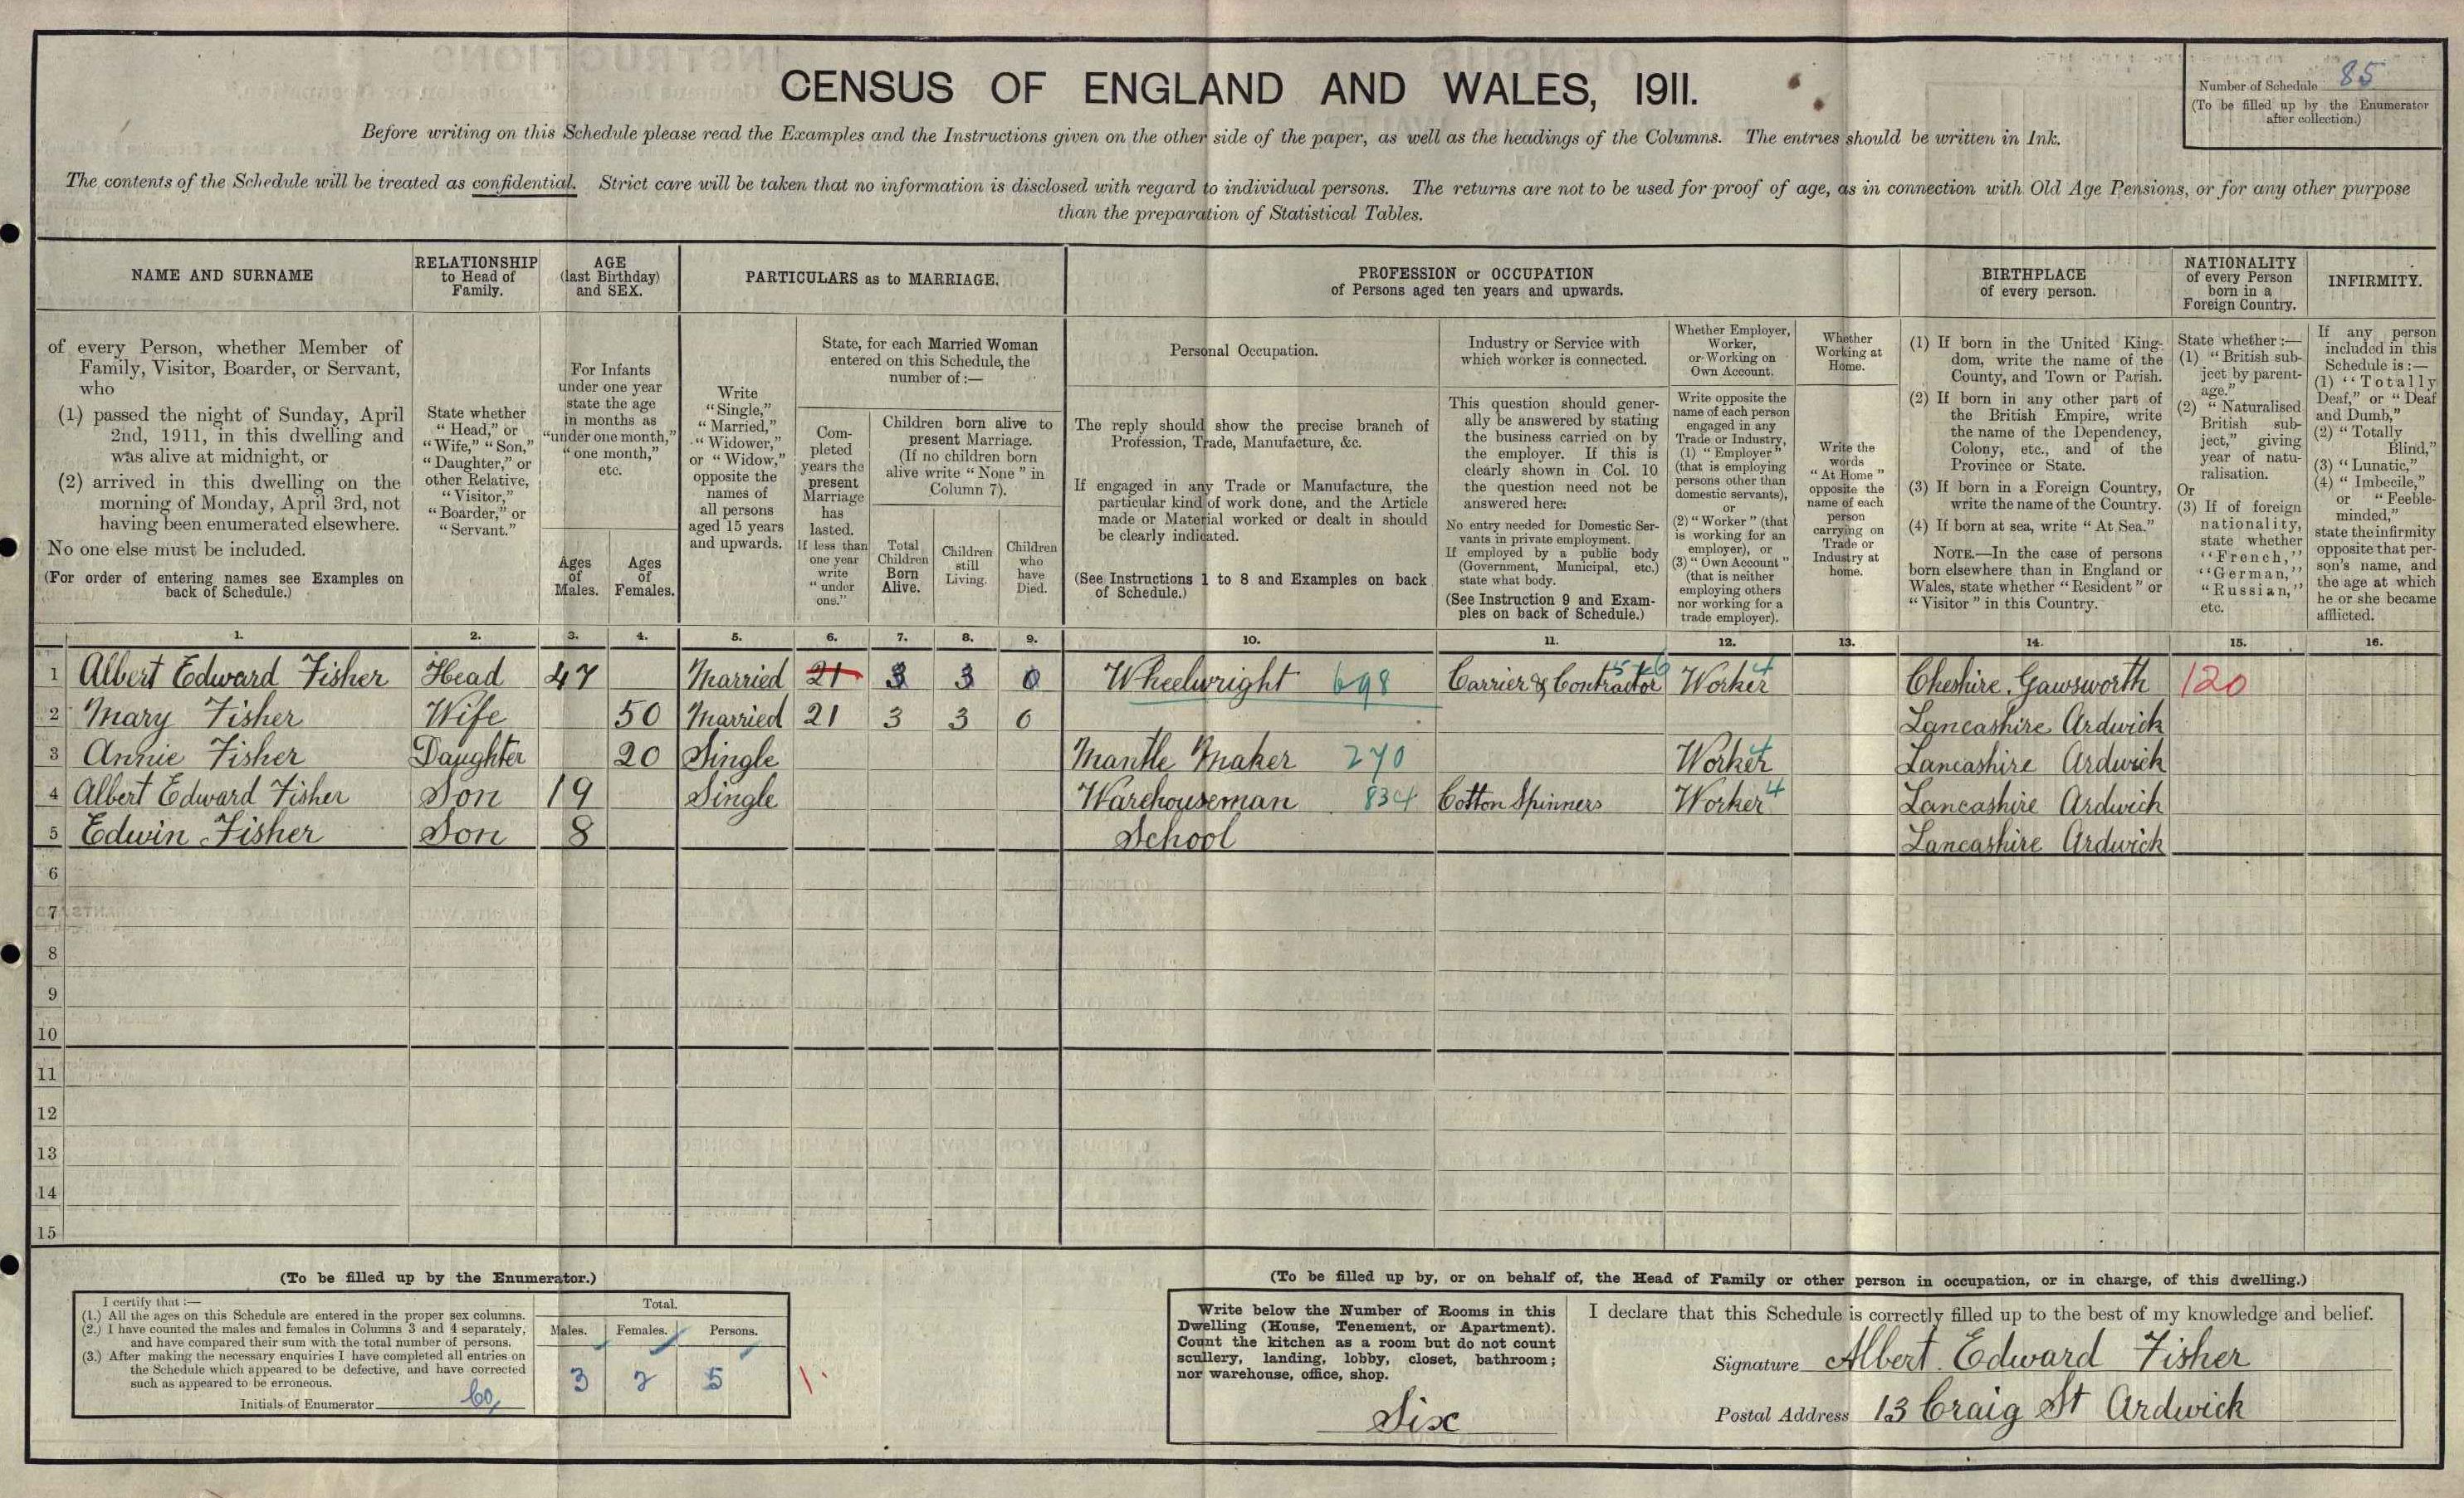 CENSUS OF ENGLAND AND WALES, 1911.
Number of Schedule 85
(To be filled up by the Enumerator
after collection.)
Before writing on this Schedule please read the Examples and the Instructions given on the other side of the paper, as well as the headings of the Columns. The entries should be written in Ink.
The contents of the Schedule will be treated as confidential. Strict care will be taken that no information is disclosed with regard to individual persons. The returns are not to be used for proof of age, as in connection with Old Age Pensions, or for any other purpose
than the preparation of Statistical Tables.
NAME AND SURNAME
of every Person, whether Member of
Family, Visitor, Boarder, or Servant,
who
(1) passed the night of Sunday, April
2nd, 1911, in this dwelling and
was alive at midnight, or
(2) arrived in this dwelling on the
morning of Monday, April 3rd, not
having been enumerated elsewhere.
No one else must be included.
(For order of entering names see Examples on
back of Schedule.)
RELATIONSHIP
to Head of
Family.
State whether
"Head," or
"Wife," "Son,"
"Daughter," or
other Relative,
"Visitor,"
"Boarder," or
"Servant."
AGE
(last Birthday)
and SEX.
For Infants
under one year
state the age
in months as
"under one month,"
"one month,"
etc.
Ages
of
Males.
Ages
of
Females.
PARTICULARS as to MARRIAGE.
Write
"Single,"
"Married,"
"Widower,"
or "Widow,"
opposite the
names of
all persons
aged 15 years
and upwards.
State, for each Married Woman
entered on this Schedule, the
number of:—
Com-
pleted
years the
present
Marriage
has
lasted.
If less than
one year
write
"under
one."
Children born alive to
present Marriage.
(If no children born
alive write "None" in
Column 7).
Total
Children
Born
Alive.
Children
still
Living.
Children
who
have
Died.
PROFESSION or OCCUPATION
of Persons aged ten years and upwards.
Personal Occupation.
The reply should show the precise branch of
Profession, Trade, Manufacture, &c.
If engaged in any Trade or Manufacture, the
particular kind of work done, and the Article
made or Material worked or dealt in should
be clearly indicated.
(See Instructions 1 to 8 and Examples on back
of Schedule.)
Industry or Service with
which worker is connected.
This question should gener-
ally be answered by stating
the business carried on by
the employer. If this is
clearly shown in Col. 10
the question need not be
answered here.
No entry needed for Domestic Ser-
vants in private employment.
If employed by a public body
(Government, Municipal, etc.)
state what body.
(See Instruction 9 and Exam-
ples on back of Schedule.)
Whether Employer,
Worker,
or Working on
Own Account.
Write opposite the
name of each person
engaged in any
Trade or Industry,
(1) "Employer"
(that is employing
persons other than
domestic servants),
or
(2) "Worker" (that
is working for an
employer), or
(3) "Own Account"
(that is neither
employing others
nor working for a
trade employer).
Whether
Working at
Home.
Write the
words
"At Home"
opposite the
name of each
person
carrying on
Trade or
Industry at
home.
BIRTHPLACE
of every person.
(1) If born in the United King-
dom, write the name of the
County, and Town or Parish.
(2) If born in any other part of
the British Empire, write
the name of the Dependency,
Colony, etc., and of the
Province or State.
(3) If born in a Foreign Country,
write the name of the Country.
(4) If born at sea, write "At Sea."
NOTE.—In the case of persons
born elsewhere than in England or
Wales, state whether "Resident" or
"Visitor" in this Country.
NATIONALITY
of every Person
born in a
Foreign Country.
State whether:—
(1) "British sub-
ject by parent-
age."
(2) "Naturalised
British sub-
ject," giving
year of natu-
ralisation.
Or
(3) If of foreign
nationality,
state whether
"French,"
"German,"
"Russian,"
etc.
INFIRMITY.
If any person
included in this
Schedule is:—
(1) "Totally
Deaf," or "Deaf
and Dumb,"
(2) "Totally
Blind,"
(3) "Lunatic,"
(4) "Imbecile,"
or "Feeble-
minded,"
state the infirmity
opposite that per-
son's name, and
the age at which
he or she became
afflicted.
1. 2. 3. 4. 5. 6. 7. 8. 9. 10. 11. 12. 13. 14. 15. 16.
1 Albert Edward Fisher Head 47 Married 21 3 3 0 Wheelwright 698 Carrier & Contractor Worker 4 Cheshire, Gawsworth 120
2 Mary Fisher Wife 50 Married 21 3 3 0 Lancashire Ardwick
3 Annie Fisher Daughter 20 Single Mantle Maker 270 Worker 4 Lancashire Ardwick
4 Albert Edward Fisher Son 19 Single Warehouseman 834 Cotton Spinners Worker 4 Lancashire Ardwick
5 Edwin Fisher Son 8 School Lancashire Ardwick
6
7
8
9
10
11
12
13
14
15
(To be filled up by the Enumerator.)
I certify that:—
(1.) All the ages on this Schedule are entered in the proper sex columns.
(2.) I have counted the males and females in Columns 3 and 4 separately,
and have compared their sum with the total number of persons.
(3.) After making the necessary enquiries I have completed all entries on
the Schedule which appeared to be defective, and have corrected
such as appeared to be erroneous.
Initials of Enumerator
Total.
Males. Females. Persons.
3 2 5
(To be filled up by, or on behalf of, the Head of Family or other person in occupation, or in charge, of this dwelling.)
Write below the Number of Rooms in this
Dwelling (House, Tenement, or Apartment).
Count the kitchen as a room but do not count
scullery, landing, lobby, closet, bathroom;
nor warehouse, office, shop.
Six
I declare that this Schedule is correctly filled up to the best of my knowledge and belief.
Signature Albert Edward Fisher
Postal Address 13 Craig St Ardwick